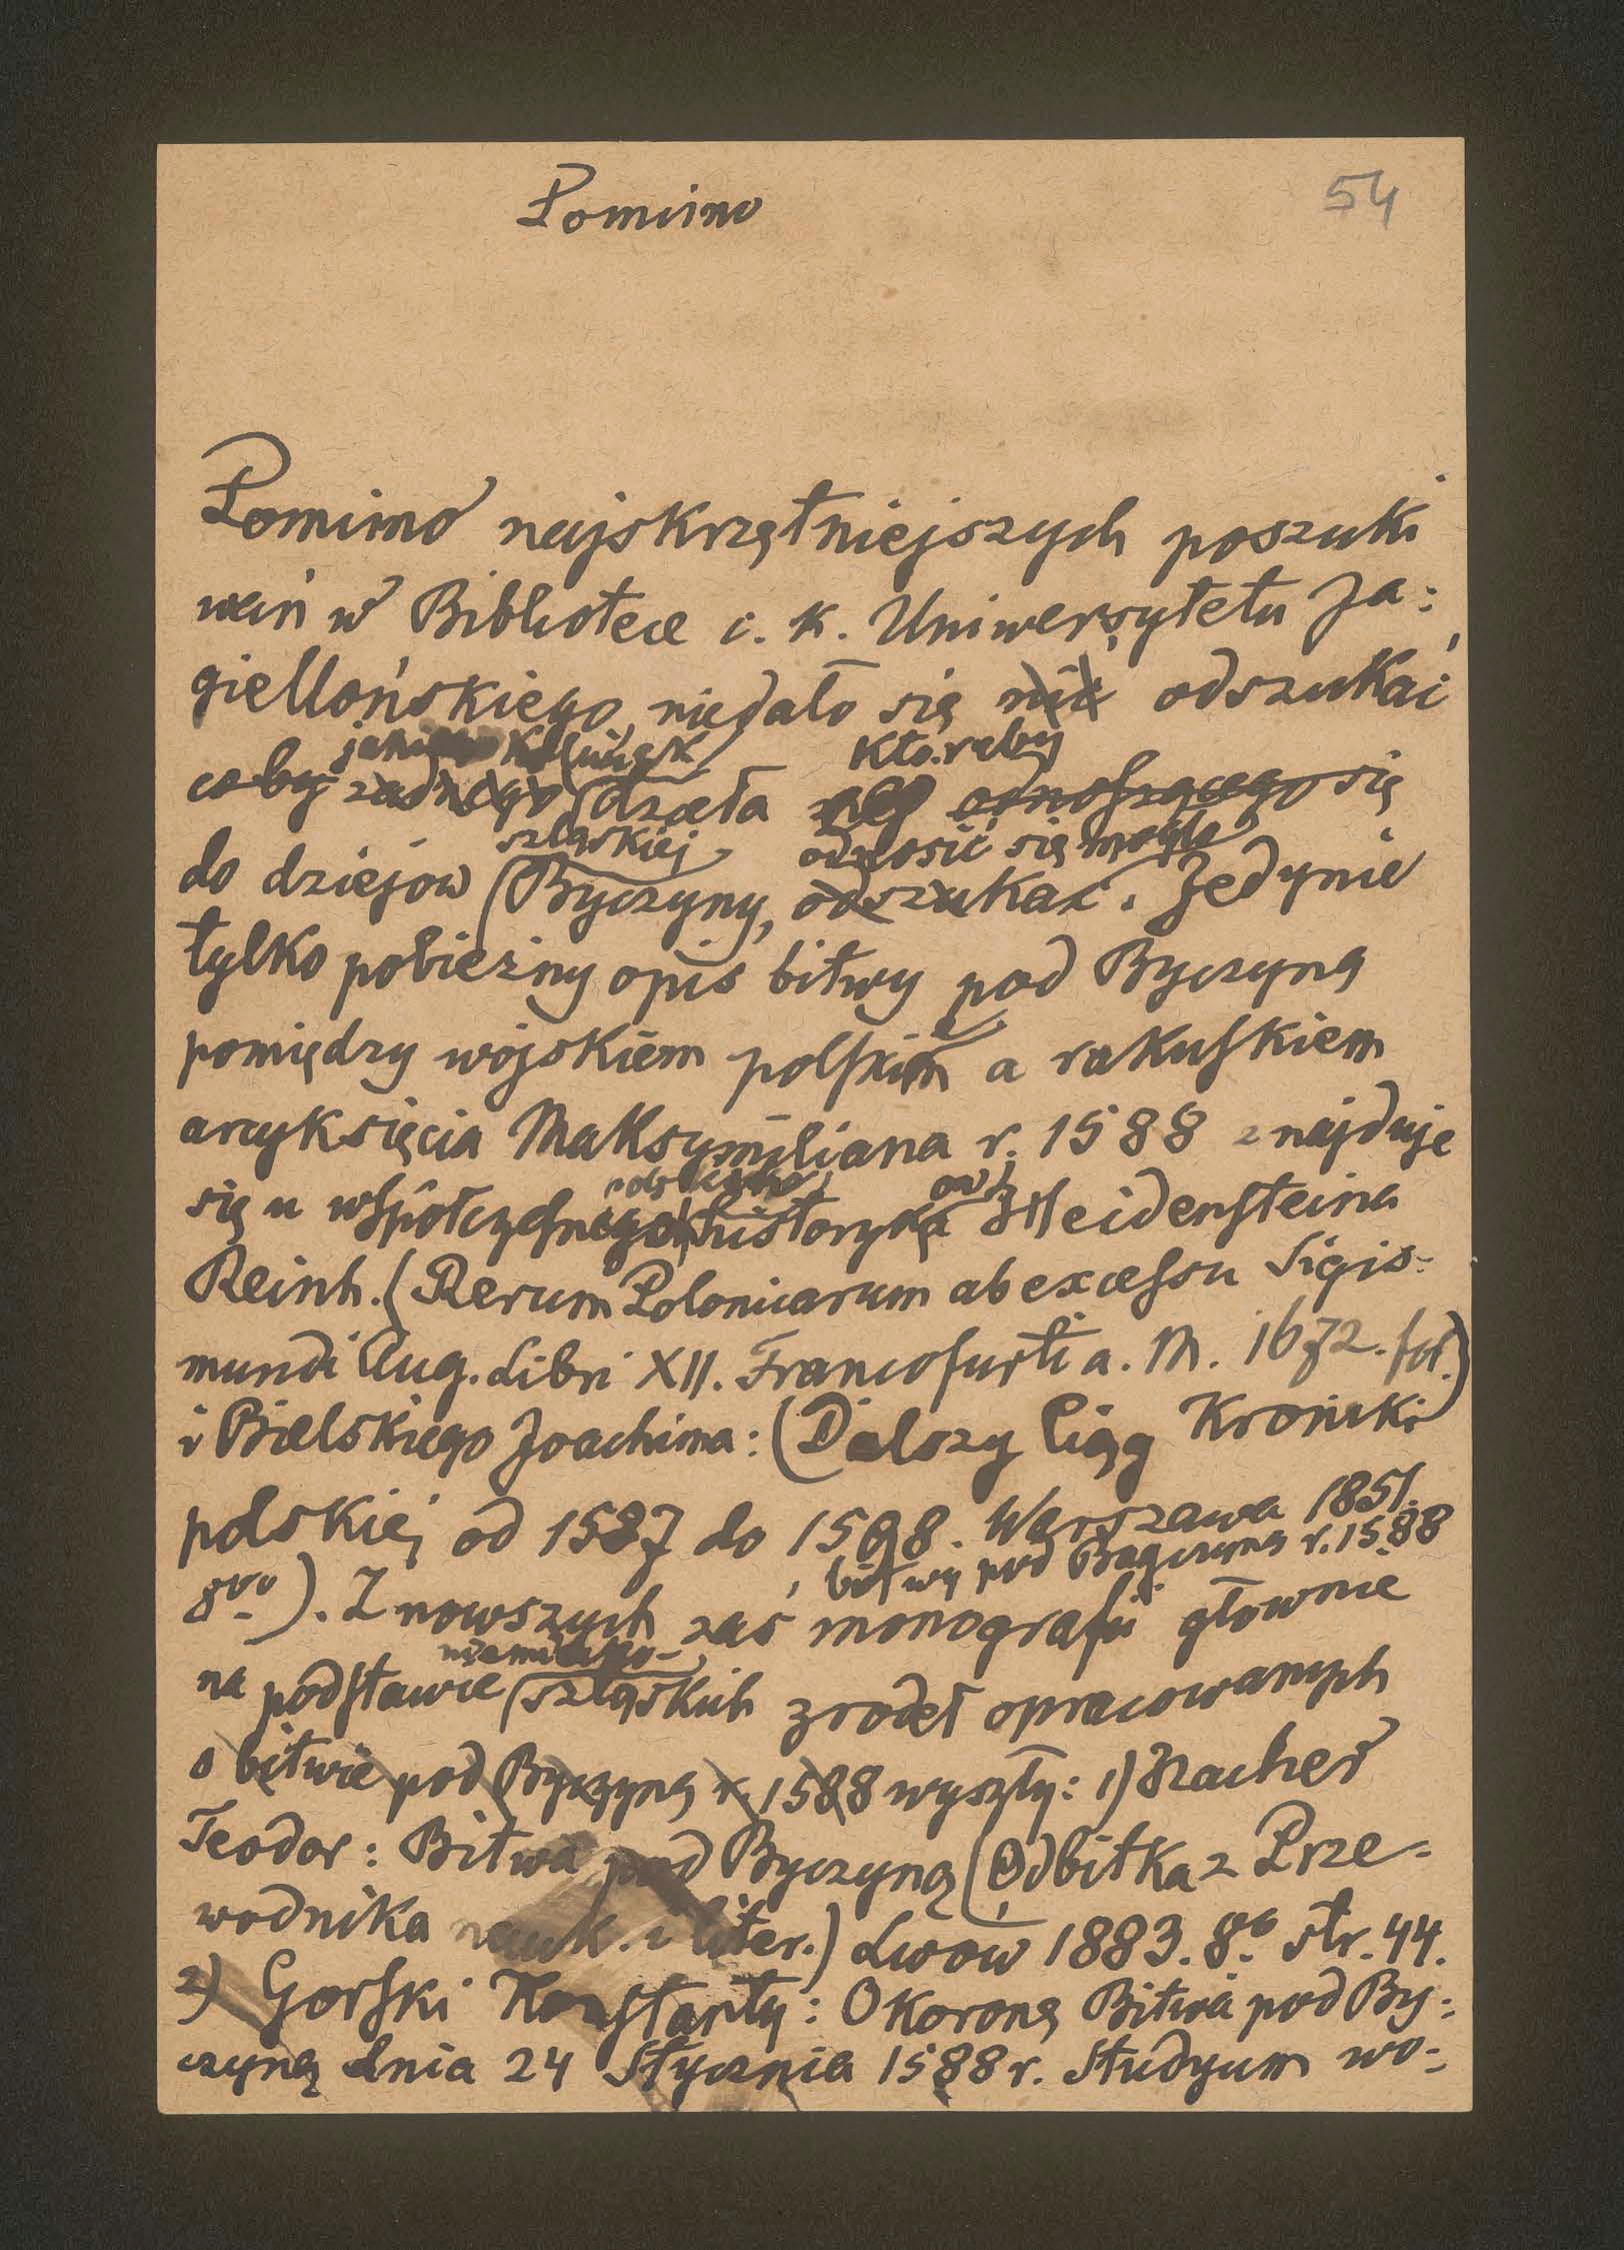 Pomimo
54
Pomimo najskrzętniejszych poszuki
wań w Bibliotece c. k. Uniwersytetu Ja:
giellońskiego niedało się nić odszukać
coby żadnego dzieła któreby odnoszącego się
szląskiej odnosić się mogło
do dziejów Byczyny, odszukać. Jedynie
tylko pobieżny opis bitwy pod Byczyną
pomiędzy wojskiem polskim a rakuskiem
arcyksięcia Maksymiliana r. 1588 znajduje
się u współczesnego historyka Heidensteina
Reinh. (Rerum Polonicarum ab excessu Sigis-
mundi Aug. Libri XII. Francofurti a. M. 1672. fol.)
i Bielskiego Joachima: (Dalszy Ciąg Kroniki
polskiej od 1587 do 1598. Warszawa 1851.
bitwy pod Byczyną r. 1588
8vo). Z nowszych zaś monografii głównie
niemiecko-
na podstawie szląskich zrodeł opracowanych
o bitwie pod Byczyną r. 1588 wyszły: 1)
Teodor: Bitwa pod Byczyną (Odbitka z Prze-
wodnika nauk. i liter.) Lwów 1883. 8o str. 44.
2) Gorski Konstanty: O Koronę Bitwa pod By:
czyną dnia 24 Stycznia 1588 r. Studyum wo-: